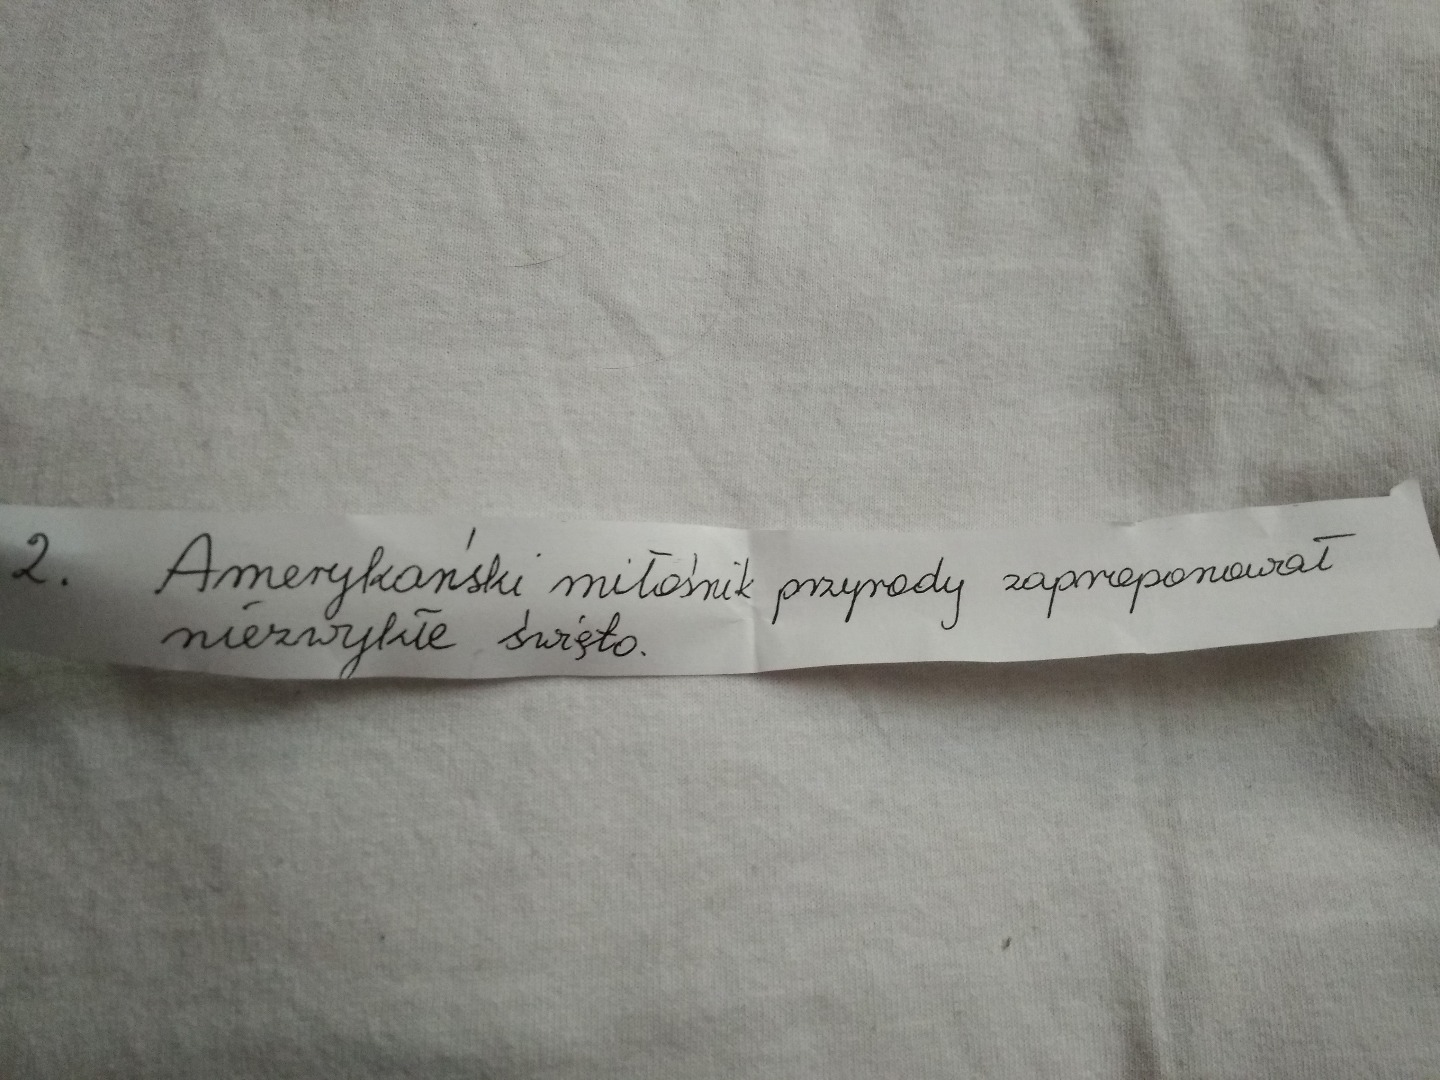 2. Amerykański miłośnik przyrody zaproponował
niezwykłe święto.